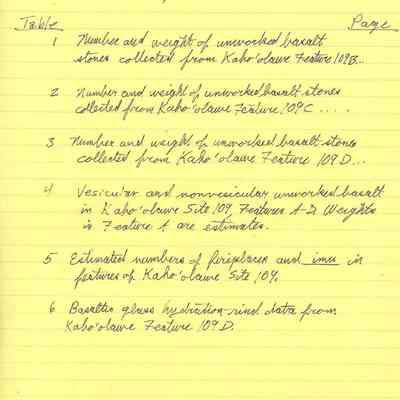 Table Page
1 Number and weight of unworked basalt
stones collected from Kaho'olawe Feature 109B...
2 Number and weight of unworked basalt stones
collected from Kaho'olawe Feature 109C.....
3 Number and weight of unworked basalt stones
collected from Kaho'olawe Feature 109D...
4 Vesicular and nonvesicular unworked basalt
in Kaho'olawe Site 109, Features A-D. Weights
in Feature A are estimates.
5 Estimated numbers of fireplaces and imu in
features of Kaho'olawe Site 109.
6 Basaltic glass hydration-rind data from
Kaho'olawe Feature 109D.